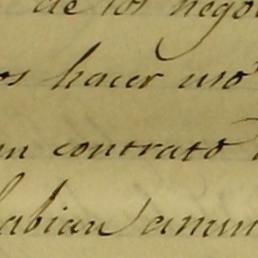 de los nego
os hacer uso
un contrato
habian amun